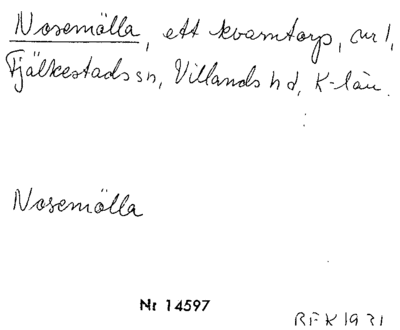 Nosemölla, ett kvarntorp, nr 1,
Fjälkestads sn, Villands hd, K-län.
Nosemölla
Nr 14597
BFK 1931